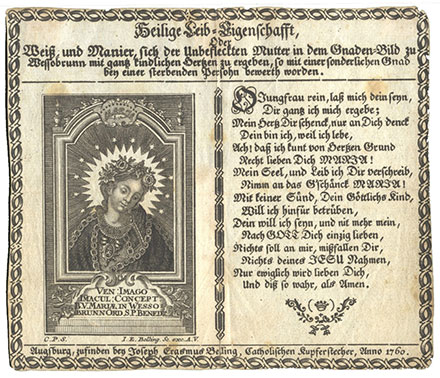 Heilige Leib-Eigenschafft,
Oder
Weiß, und Manier, sich der Unbefleckten Mutter in dem Gnaden-Bild zu
Wessobrunn mit gantz kindlichen Hertzen zu ergeben, so mit einer sonderlichen Gnad
bey einer sterbenden Persohn bewerth worden.
VEN: IMAGO
IMACUL: CONCEPT
B.V. MARIÆ IN WESSO
BRUNN ORD S.P. BENED
C. P. S. I. E. Belling. Sc. exc. A. V.
O Jungfrau rein, laß mich dein seyn,
Dir gantz ich mich ergebe:
Mein Hertz Dir schenck, nur an Dich denck
Dein bin ich, weil ich lebe,
Ach! daß ich kunt von Hertzen Grund
Recht lieben Dich MARIA!
Mein Seel, und Leib ich Dir verschreib,
Nimm an das G'schänck MARIA!
Mit keiner Sünd, Dein Göttlichs Kind,
Will ich hinfür betrüben,
Dein will ich seyn, und nit mehr mein,
Nach GOTT Dich einzig lieben
Nichts soll an mir, mißfallen Dir,
Nichts deines JESU Nahmen,
Nur ewiglich wird lieben Dich,
Und diß so wahr, als Amen.
Augsburg, zufinden bey Joseph Erasmus Beling, Catholischen Kupferstecher, Anno 1760.